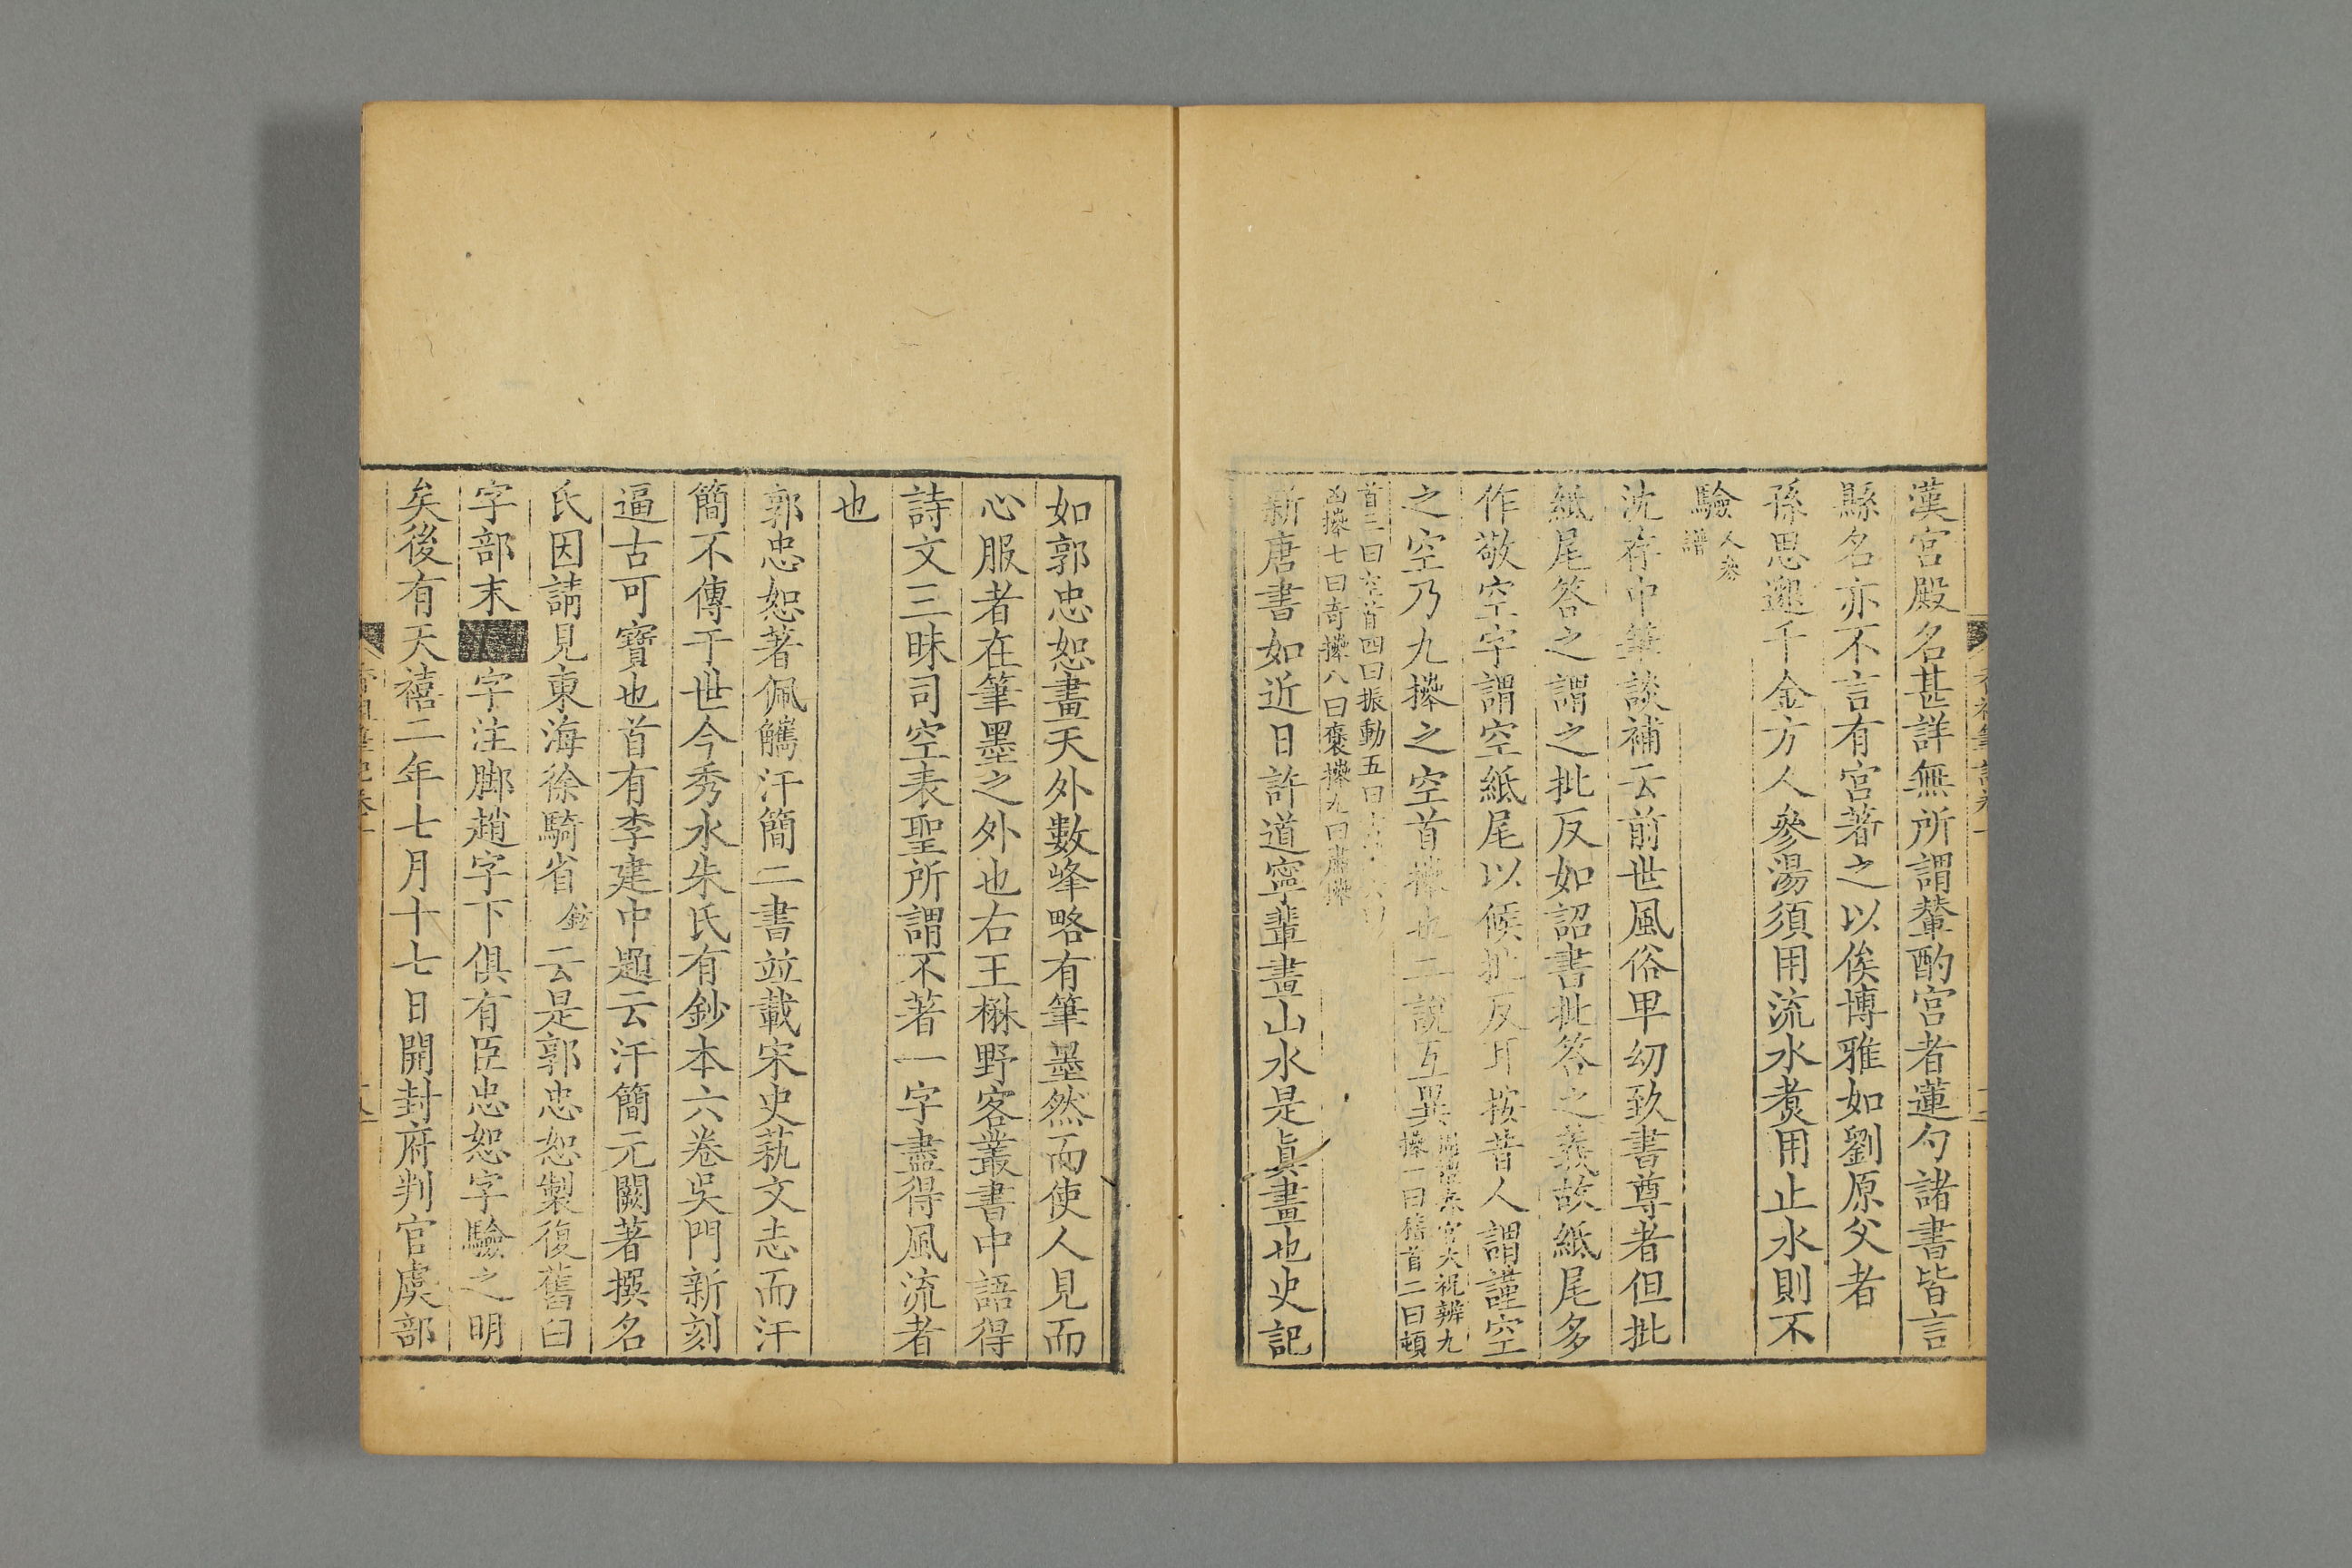 漢宮殿名甚詳無所謂輦酌宮者蓮勺諸書皆言
縣名亦不言有宮著之以俟博雅如劉原父者
孫思邈千金方人參湯須用流水煑用止水則不
驗人參譜
沈存中筆談補云前世風俗卑㓜致書尊者但批
紙尾答之謂之批反如詔書批答之義故紙尾多
作敬空字謂空紙尾以候批反耳按昔人謂謹空
之空乃九㩋之空首㩋也二說互異周禮春官大祝辨九㩋一曰稽首二曰頓
首三曰空首四曰振動五曰吉㩋六曰凶㩋七曰奇㩋八曰襃㩋九曰肅㩋
新唐書如近日許道寧輩畫山水是眞畫也史記
如郭忠恕畫天外數峰略有筆墨然而使人見而
心服者在筆墨之外也右王楙野客叢書中語得
詩文三昧司空表聖所謂不著一字盡得風流者
也
郭忠恕著佩觿汗簡二書竝載宋史藝文志而汗
簡不傳于世今秀水朱氏有鈔本六卷吳門新刻
逼古可寶也首有李建中題云汗簡元闕著撰名
氏因請見東海徐騎省鉉云是郭忠恕製復舊曰
字部末字注脚趙字下俱有臣忠恕字驗之明
矣後有天禧二年七月十七日開封府判官虞部